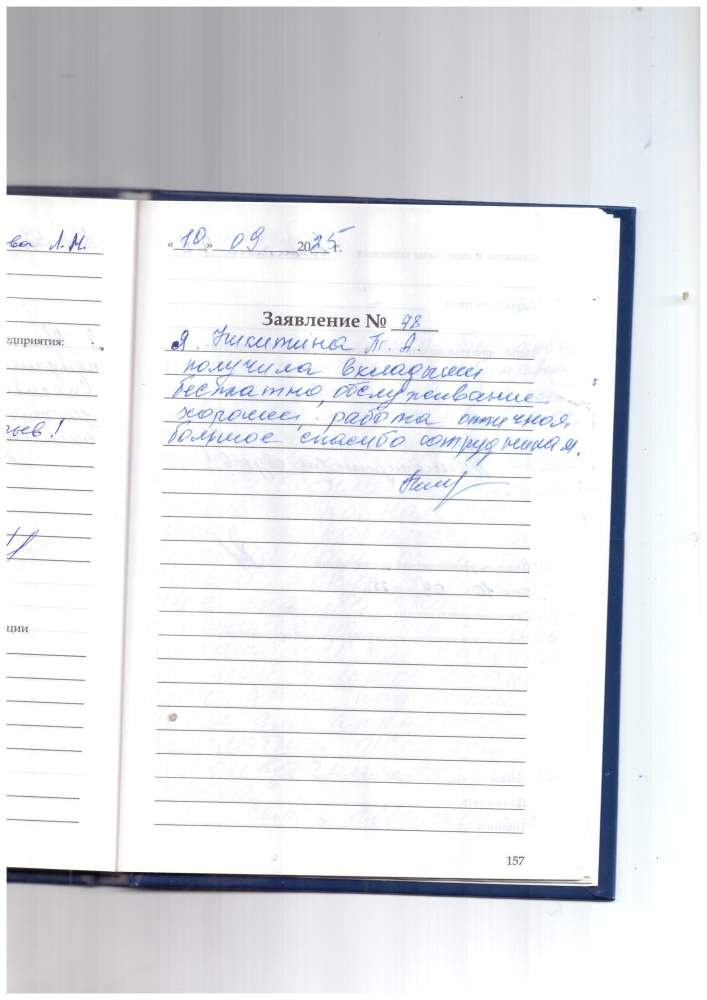 ва Л.М.
едприятия:
ьев!
ции
« 10 » 09 2025 г.
Заявление № 78
Я Никитина Т. А.
получила вкладыши
бесплатно, обслуживание
хорошее, работа отличная,
большое спасибо сотрудникам.
157